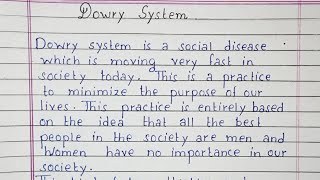 Dowry System
Dowry system is a social disease
which is moving very fast in
society today. This is a practice
to minimize the purpose of our
lives. This practice is entirely based
on the idea that all the best
people in the society are men and
Women have no importance in our
society.